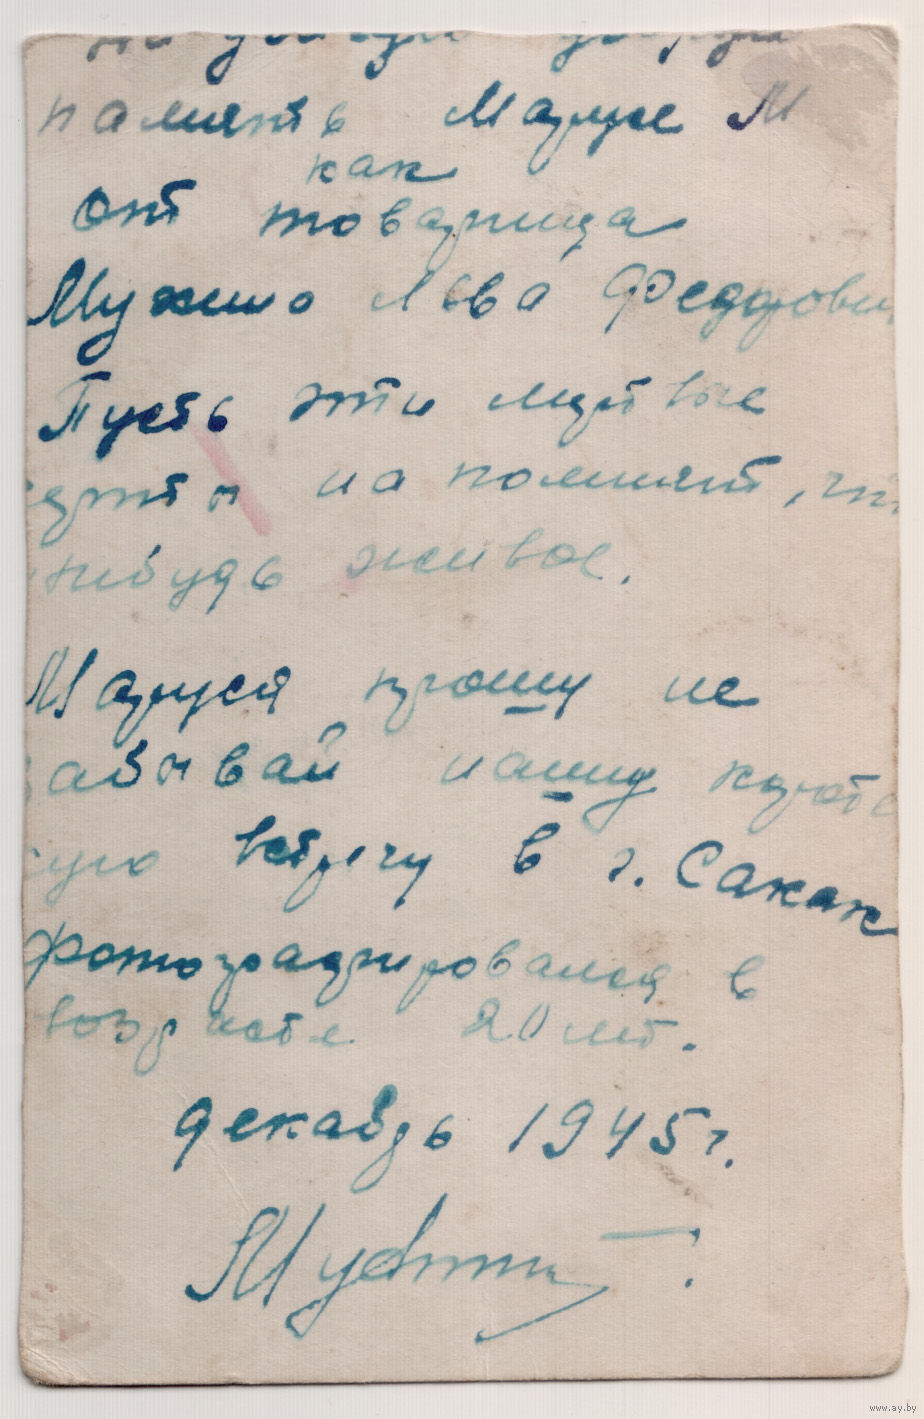 память Марусе М
как
от товарища
Льва Федорови
Пусть эти мертвые
на помнят, что
нибудь живое.
Маруся прошу не
забывай нашу корот
кую встречу в г. Саках
фотографировался в
возрасте 20 лет.
декабрь 1945 г.
www.ay.by